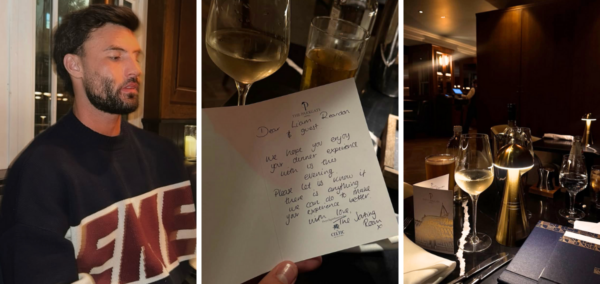 ENE
Dear Liam Reardon
& guest
We hope you enjoy
your dinner experience
with us this
evening.
Please let us know if
there is anything
we can do to make
your experience better
With love,
The
Room
x